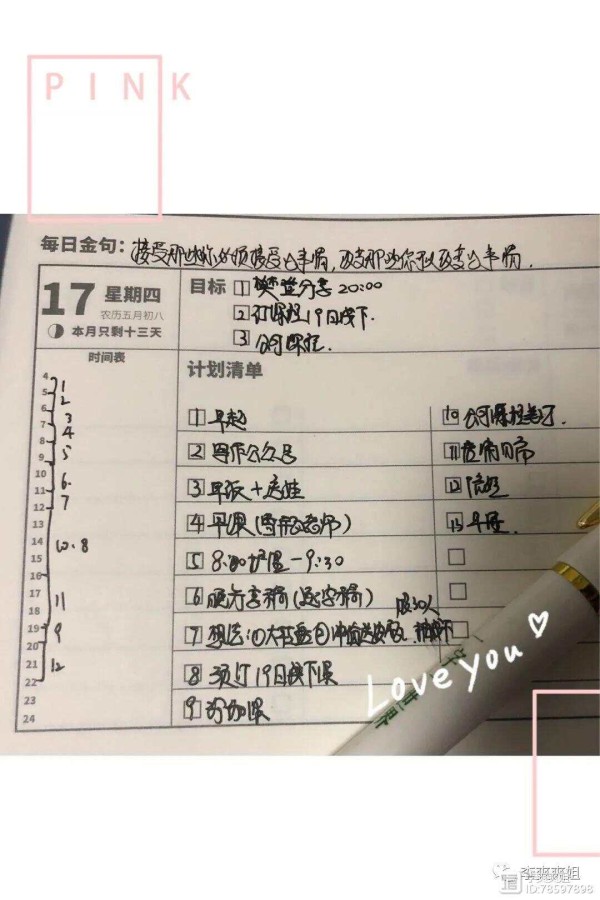 PINK
每日金句：接受那些你必须接受的事情，改变那些你可以改变的事情.
17 星期四
农历五月初八
本月只剩十三天
目标 1 樊登分享 20:00
2 订课程19日线下.
3 公司课程.
时间表
计划清单
4
5
6
7
8
9
10
11
12
13
14
15
16
17
18
19
20
21
22
23
24
1
2
3
4
5
6
7
10.8
11
9
12
1 早起
2 写作公众号
3 早饭+
4 早课(老师)
5 8:00 护理-9:30
6 (逐字稿)
7 想法:①大 ②
8 预订19日线下课
9 参加课
10 公司课程
11
12
13
Love you
李爽爽姐
ID:78597898